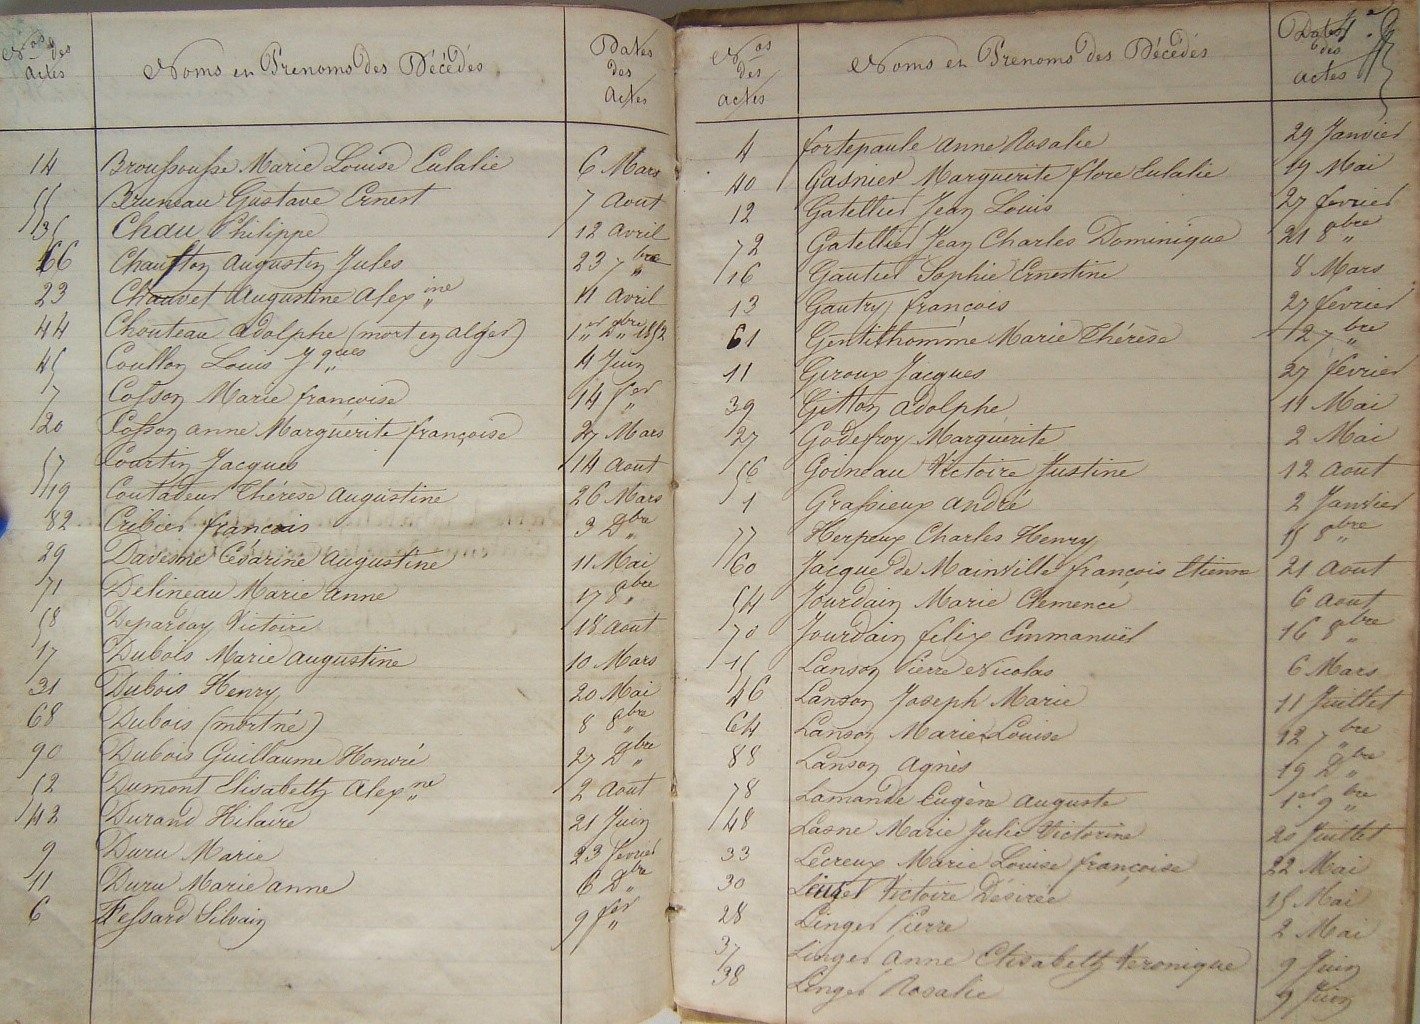 Nos des actes Noms et Prénoms des Décédés Dates des actes
14 Broussousse Marie Louise Eulalie 6 Mars
55 Bruneau Gustave Ernest 7 Aout
35 Chau Philippe 12 avril
66 Augustin Jules 23 7bre
23 Chauvet Augustine Alexine 11 avril
44 Chouteau adolphe (mort en alger) 1er Xbre 1852
45 Coullon Louis Jques 4 Juin
7 Cosson Marie francoise 14 fer
20 Cosson anne Marguérite françoise 27 Mars
57 Courtin Jacques 14 Aout
19 Coutadeur Thérèse Augustine 26 Mars
82 Cribier françois 3 Xbre
29 Davesne Césarine Augustine 11 Mai
71 Delineau Marie anne 17 8bre
58 Deparday Victoire 18 aout
17 Dubois Marie augustine 10 Mars
31 Dubois Henry 20 Mai
68 Dubois (mort né) 8 8bre
90 Dubois Guillaume Honoré 27 Xbre
52 Dumont Elisabeth Alexne 2 Aout
42 Durand Hilaire 21 Juin
9 Duru Marie 23 février
11 Duru Marie anne 6 Xbre
6 Fessard Silvain 9 fer
Nos des actes Noms et Prénoms des Décédés Dates des actes
4 fortepaule Anne Rosalie 29 Janvier
40 Gasnier Marguerite flore Eulalie 19 Mai
12 Gatellier Jean Louis 27 fevrier
72 Gatellier Jean Charles Dominique 21 8bre
16 Gautier Sophie Ernestine 8 Mars
13 Gautry françois 27 fevrier
61 Gentilhomme Marie Thérèse 12 7bre
11 Giroux Jacques 27 février
39 Gitton adolphe 11 Mai
27 Godefroy Marguerite 2 Mai
56 Goineau Victoire Justine 12 aout
1 Grassieux andré 2 Janvier
77 Herpeux Charles Henry 15 8bre
60 Jacque de Mainville françois Etienne 21 aout
54 Jourdain Marie Clemence 6 aout
70 Jourdain felix Emmanuël 16 8bre
15 Lanson Pierre Nicolas 6 Mars
46 Lanson Joseph Marie 11 Juillet
64 Lanson Marie Louise 12 7bre
88 Lanson Agnès 19 Xbre
78 Lamande Eugène Auguste 1er 9bre
48 Lasne Marie Julie Victorine 20 Juillet
33 Lecreux Marie Louise françoise 22 Mai
30 Victoire Desirée 15 Mai
28 Linger Pierre 2 Mai
37 Linger Anne Elisabeth Veronique 9 Juin
38 Linger Rosalie 9 Juin